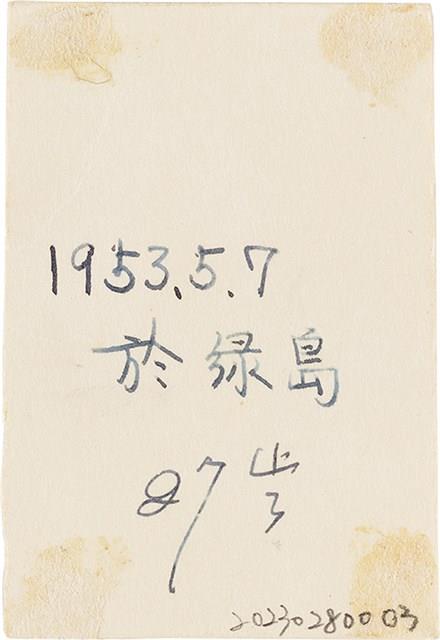 1953.5.7
於緑島
27岁
20230280003